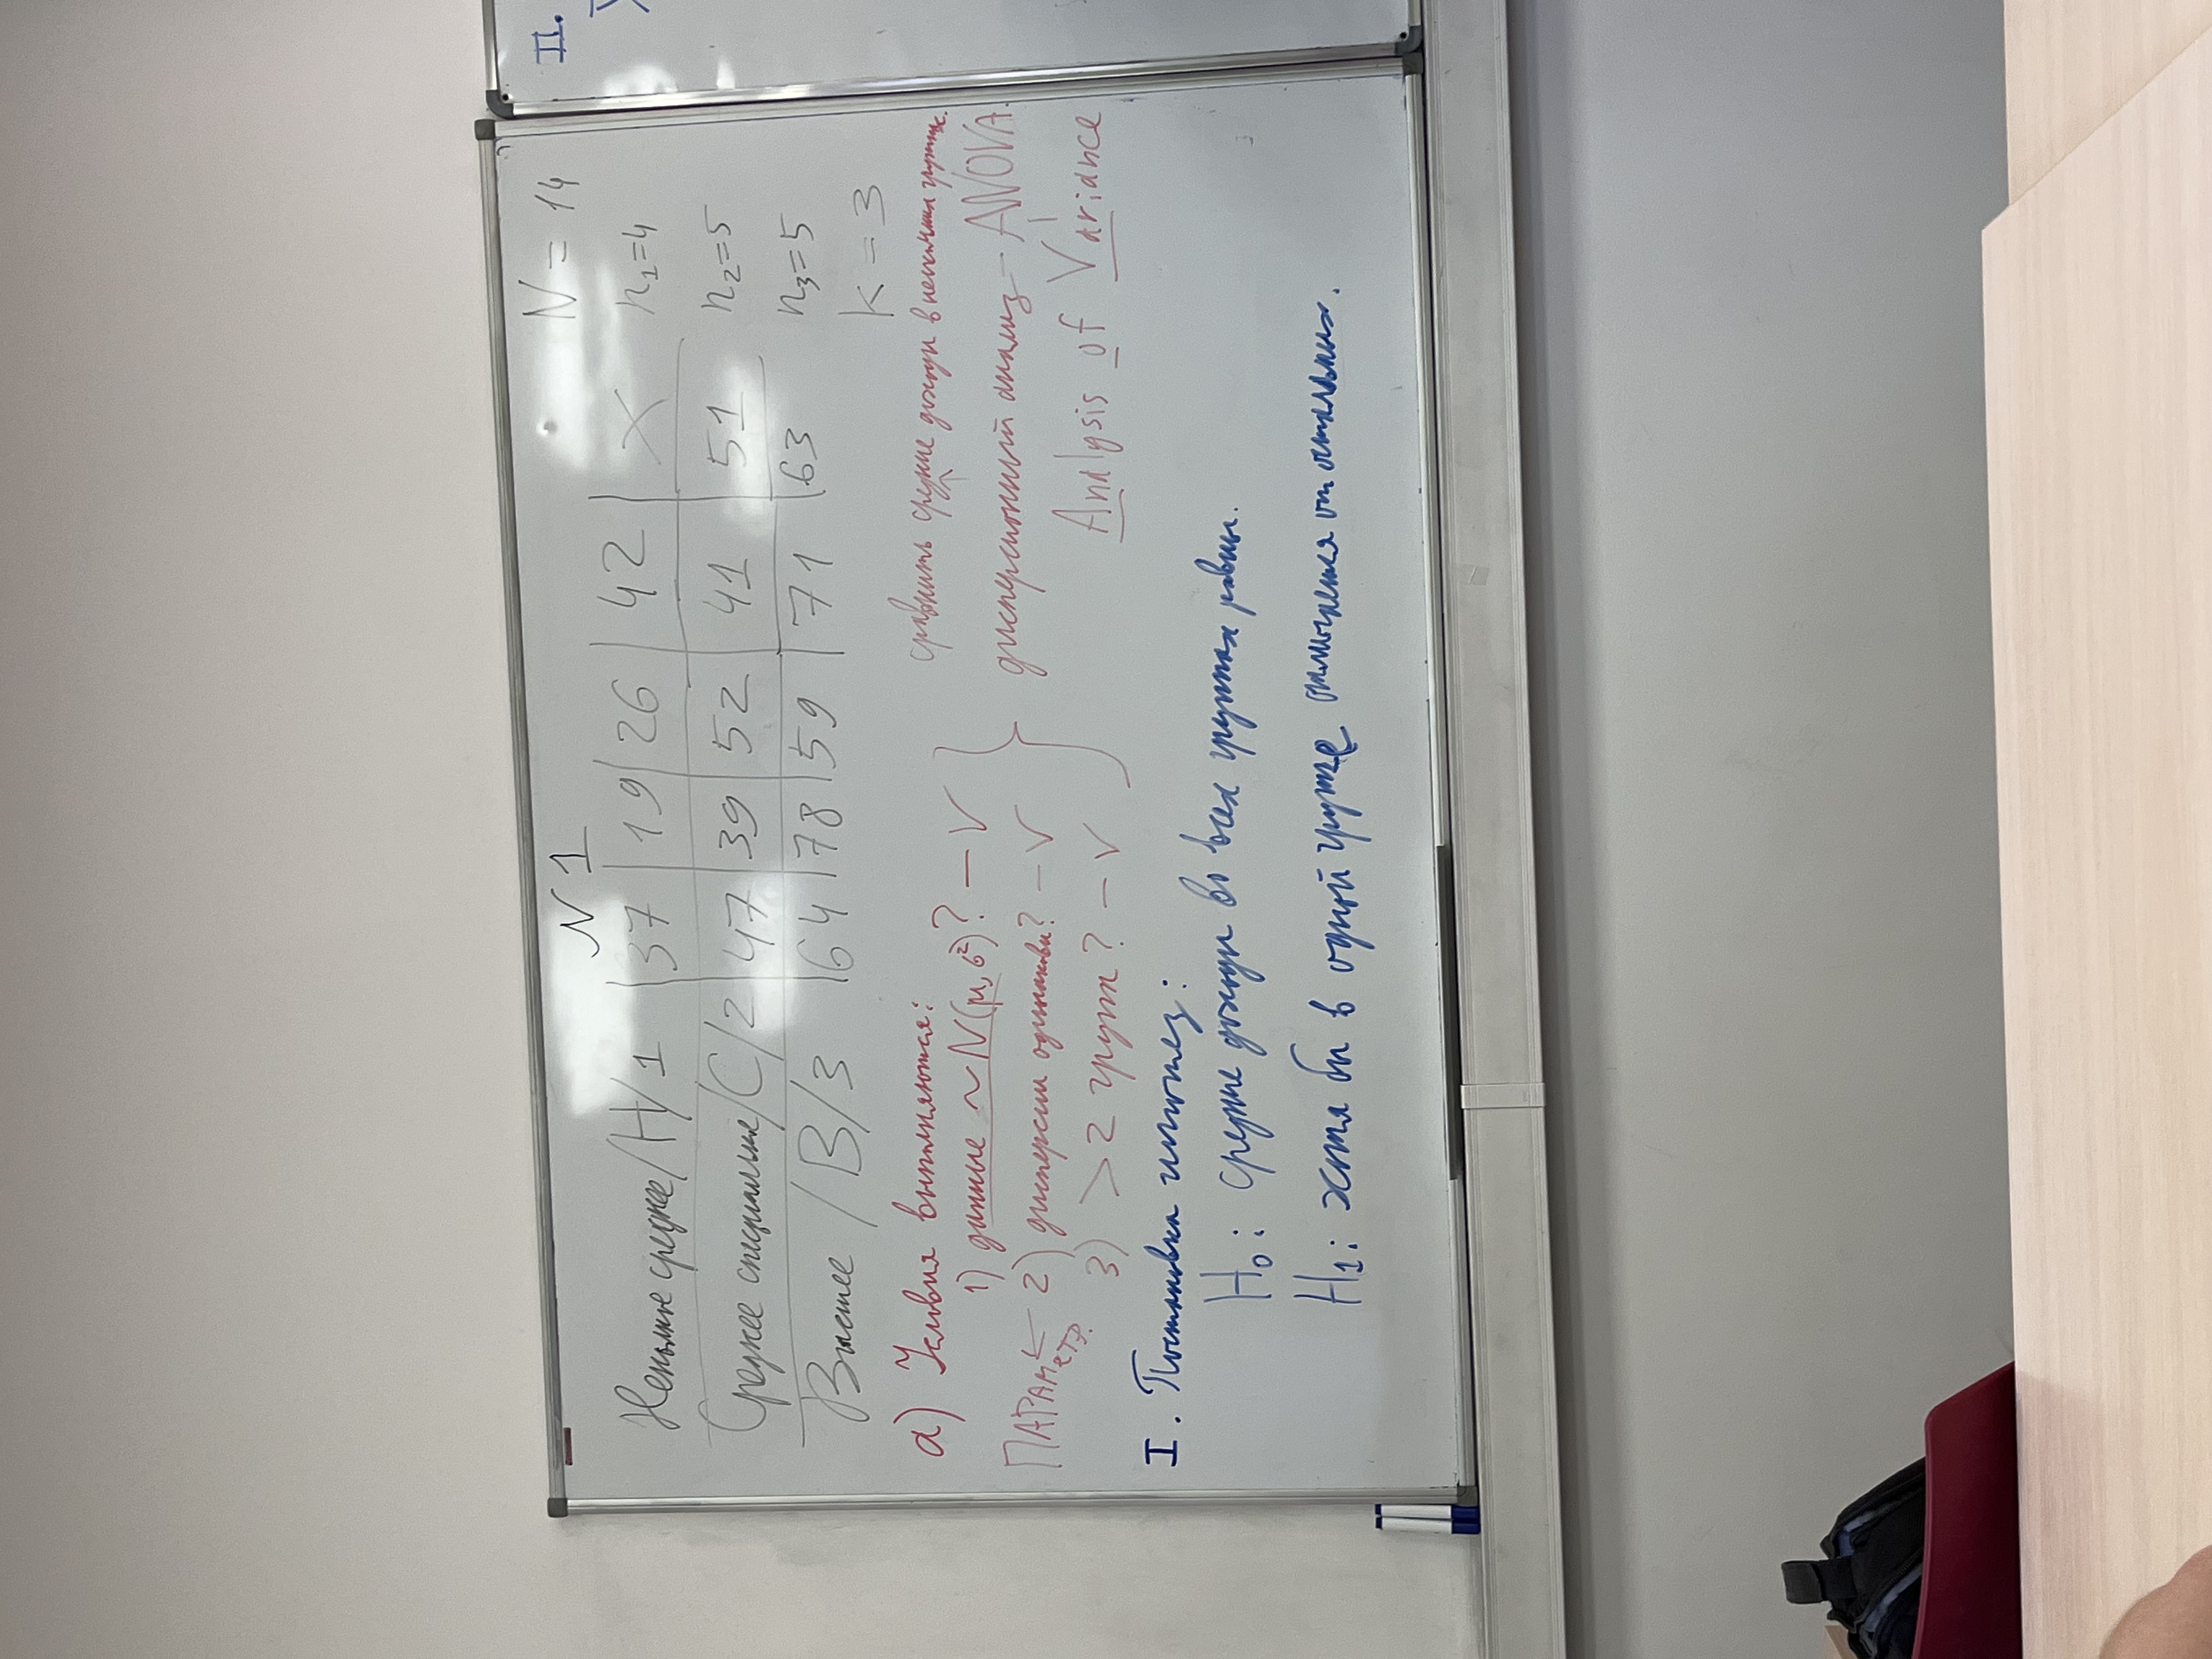 N 1
N = 14
Неполное среднее/Н/1 37 19 26 42 X n₁=4
Среднее специальное/С/2 47 39 52 41 51 n₂=5
Высшее /В/3 64 78 59 71 63 n₃=5
K = 3
а) Условия выполняются:
1) данные ~ N(μ, σ²)? – V
ПАРАметр. ← 2) дисперсии одинаковы? – V
3) >2 групп? – V
сравнить средние доходы в нескольких группах.
дисперсионный анализ – ANOVA.
Analysis of Variance
I. Постановка гипотез:
H₀: средние доходы во всех группах равны.
H₁: хотя бы в одной группе отличается от остальных.
II.